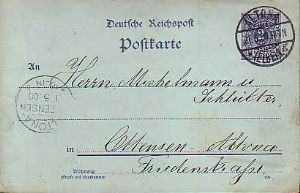 Deutsche Reichspost
Postkarte
An
Herrn Michelmann u
Schlüter
in Ottensen-Altona
Friedenstraße
Wohnung
(Straße und Hausnummer)
ALTONA
OTTENSEN